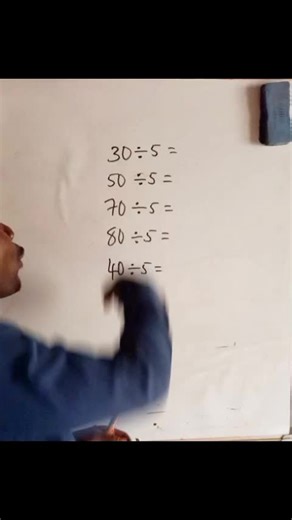 30÷5=
50÷5=
70÷5=
80÷5=
40÷5=